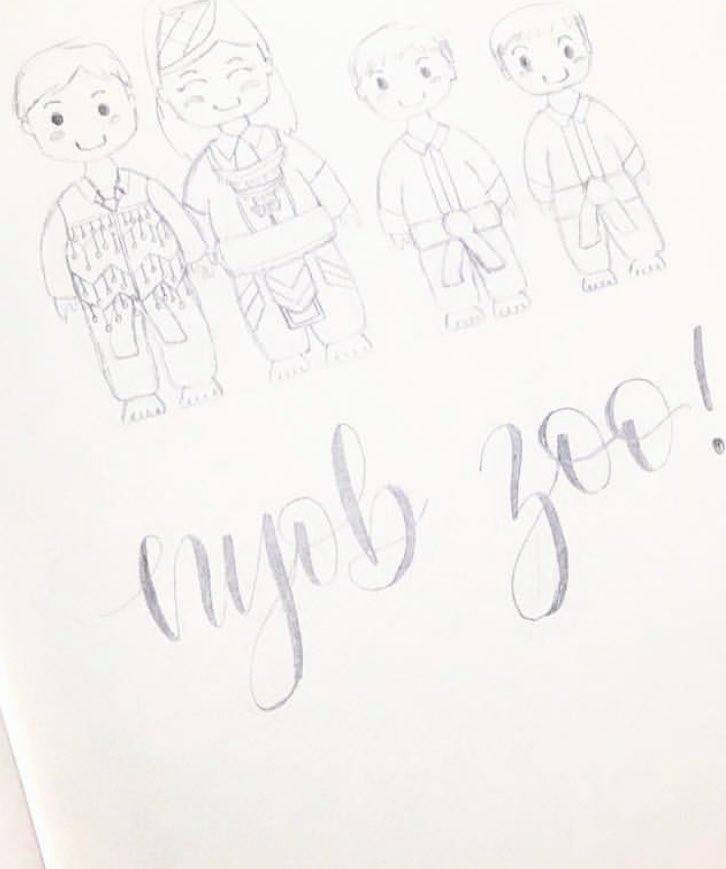 nyob zoo!